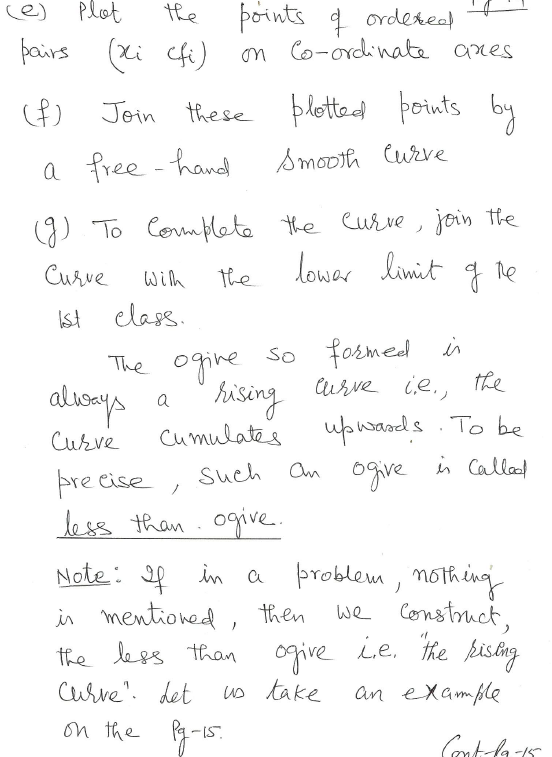 (e) Plot the points of ordered
pairs (xi cfi) on Co-ordinate axes
(f) Join these plotted points by
a free-hand smooth curve
(g) To Complete the curve, join the
Curve with the lower limit of the
1st class.
The ogive so formed is
always a rising curve i.e., the
Curve cumulates upwards. To be
precise, such an ogive is called
less than ogive.
Note: If in a problem, nothing
is mentioned, then we construct,
the less than ogive i.e. "the rising
Curve". Let us take an example
on the Pg-15.
Cont-Pg-15